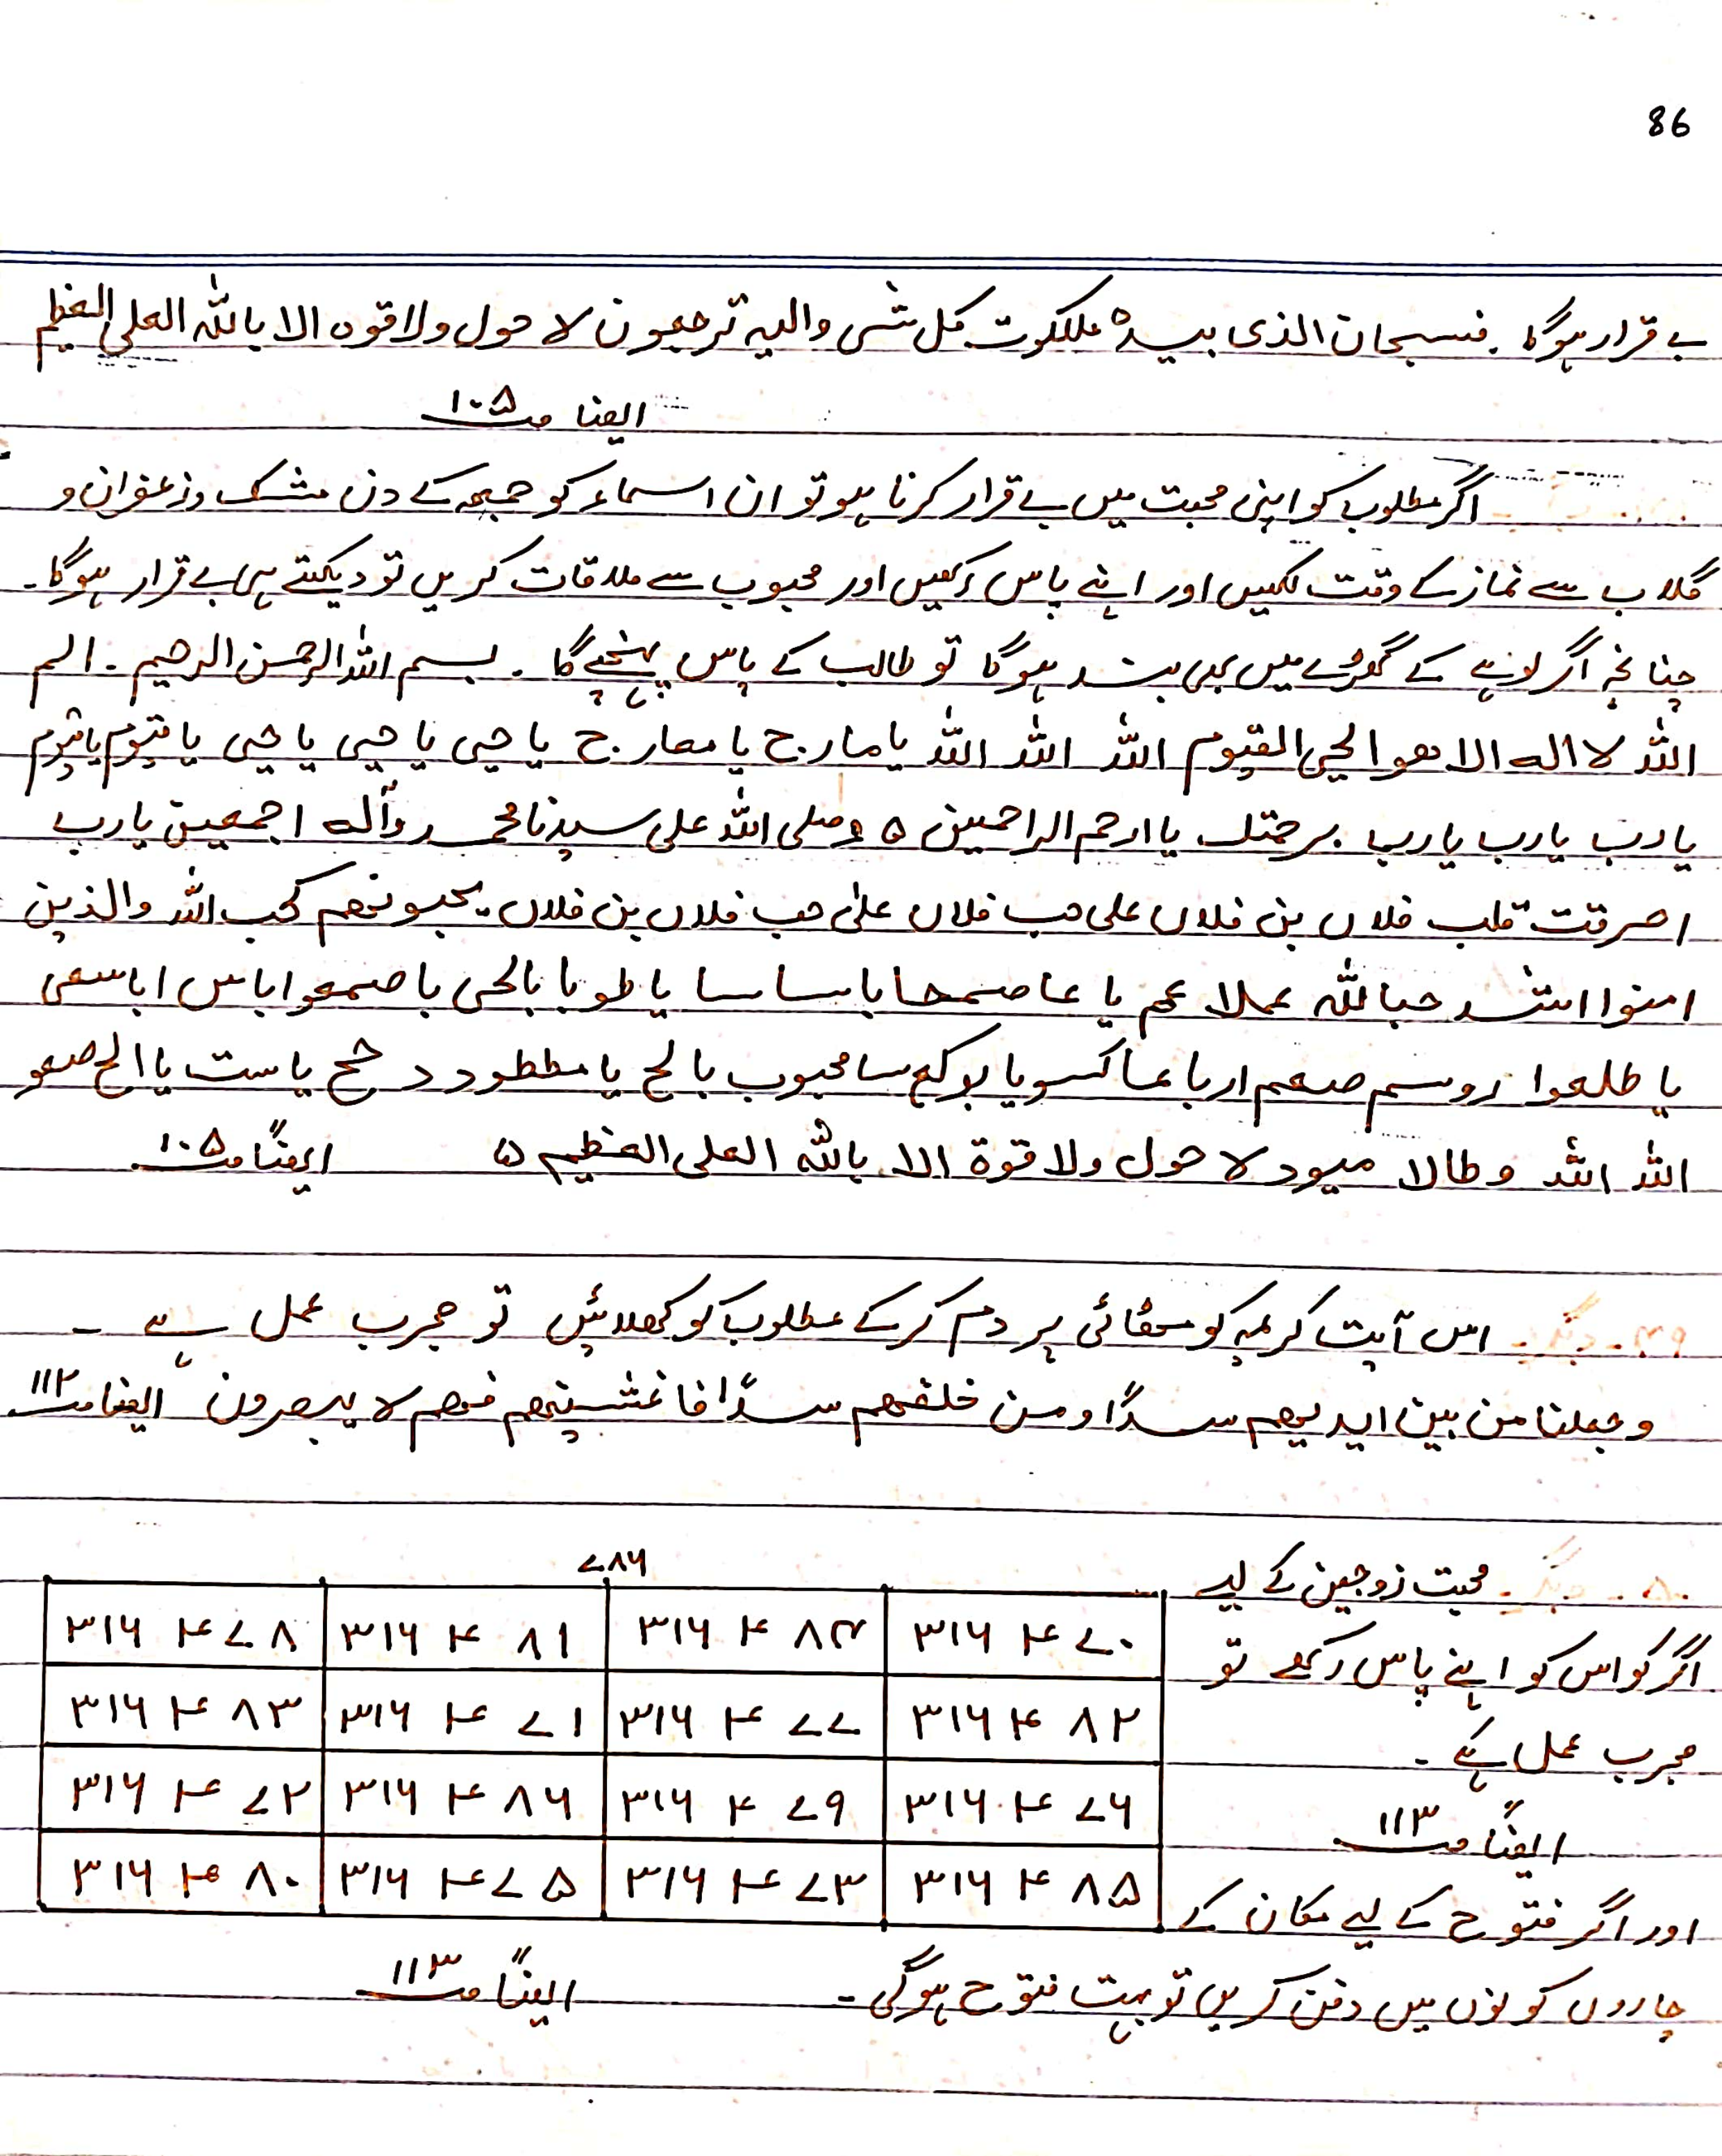 86
بے قرار ہوگا۔ فسبحان الذی بیدہ ملکوت کل شئی والیہ ترجعون لا حول ولا قوہ الا باللہ العلی العظیم
ایضا ص ۱۰۵
اگر مطلوب کو اپنی محبت میں بے قرار کرنا ہو تو ان اسماء کو جمعہ کے دن مشک و زعفران و
گلاب سے نماز کے وقت لکھیں اور اپنے پاس رکھیں اور محبوب سے ملاقات کریں تو دیکھتے ہی بے قرار ہوگا۔
چنانچہ اگر لوہے کے گھڑے میں بھی بند ہوگا تو طالب کے پاس پہنچے گا۔ بسم اللہ الرحمن الرحیم۔ الم
اللہ لا الہ الا ھو الحی القیوم اللہ اللہ اللہ یا مارح یا معارح یا حیی یا حیی یا حیی یا قیوم یا قیوم
یا رب یا رب یا رب برحمتک یا ارحم الراحمین ۵ وصلی اللہ علی سیدنا محمد وآلہ اجمعین یا رب
احرقت قلب فلاں بن فلاں علی حب فلاں علی حب فلاں بن فلاں یحبونھم کحب اللہ والذین
امنوا اشد حبا للہ عملا عم یا عاصمحا باساسا یا طوبا بالحی باصمعوا باس اباسعی
یا طلعوا روسم صعم اربا عاکسو یا محبوب بالح یا مططود د یا ست یا الح صعو
اللہ اللہ وطالا میود لا حول ولا قوة الا باللہ العلی العظیم ۵ ایضاً ص ۱۰۵
۴۹۔ دیگر۔ اس آیت کریمہ کو مٹھائی پر دم کرکے مطلوب کو کھلائیں تو مجرب عمل ہے ۔
وجعلنا من بین ایدیھم سدًا ومن خلفھم سدًا فاغشینھم فھم لا یبصرون ایضا ص ۱۱۲
۵۰۔ دیگر۔ محبت زوجین کے لیے
اگر کو اس کو اپنے پاس رکھے تو
مجرب عمل ہے ۔
ایضاً ص ۱۱۳
۷۸۶
۳۱۶ ۴ ۷۸ ۳۱۶ ۴ ۸۱ ۳۱۶ ۴ ۸۴ ۳۱۶ ۴ ۷۰
۳۱۶ ۴ ۸۳ ۳۱۶ ۴ ۷۱ ۳۱۶ ۴ ۷۷ ۳۱۶ ۴ ۸۲
۳۱۶ ۴ ۷۲ ۳۱۶ ۴ ۸۶ ۳۱۶ ۴ ۷۹ ۳۱۶ ۴ ۷۶
۳۱۶ ۴ ۸۰ ۳۱۶ ۴ ۷۵ ۳۱۶ ۴ ۷۳ ۳۱۶ ۴ ۸۵
اور اگر فتوح کے لیے مکان کے
چاروں کونوں میں دفن کریں تو بہت فتوح ہوگی ۔ ایضاً ص ۱۱۳